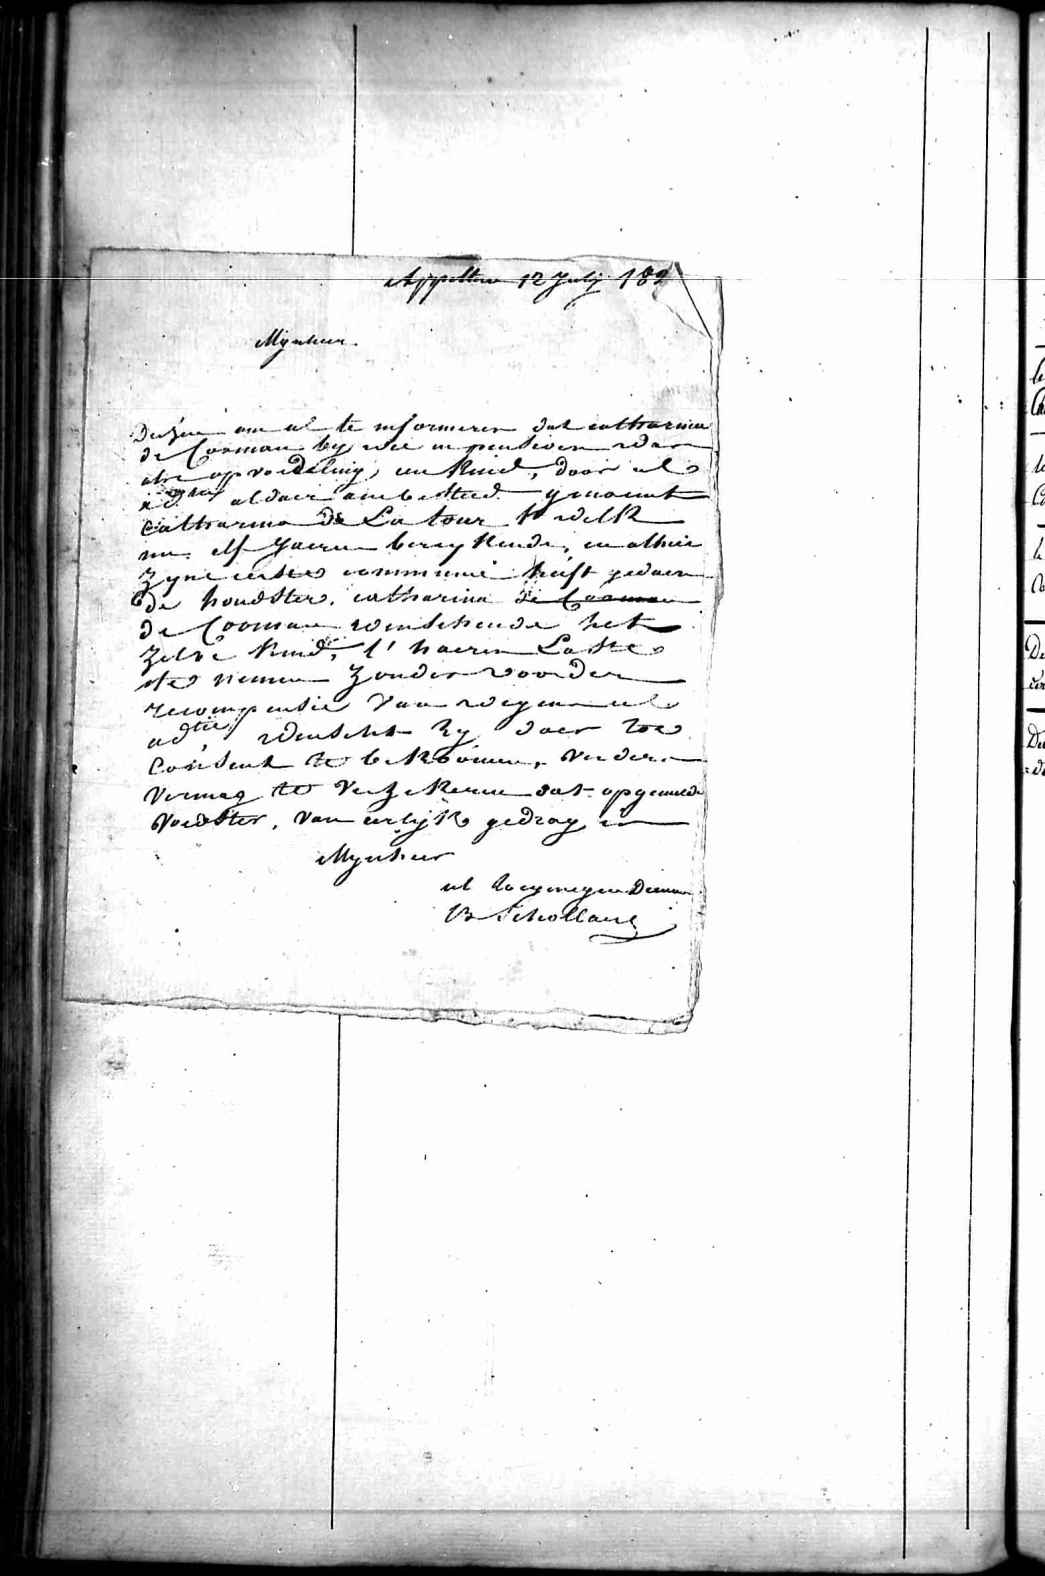 Appelterre 12 July 182
Mynheer.
Dezen om ul te informeren dat catharina
de Cooman by wie in pensioen was
ofte opvoedeling, een kind, door ul
adtie aldaer aenbesteed genoemt
Catharina De La tour t welk
nu elf Jaeren bereykende, en alhier
zyne eerste communie heeft gedaen
de houdster. catharina de Cooman
de Cooman wenschende het
zelve kind, t' haeren Laste
te nemen zonder voorder
recompensie van wegens ul
adtie, wenscht zy daer toe
Consent te bekoomen, verders
vermag te verzekeren dat opgemelde
voedster, van eerlijk gedrag, en
Mynheer
ul toegenegen Dienaer
B Schollaert